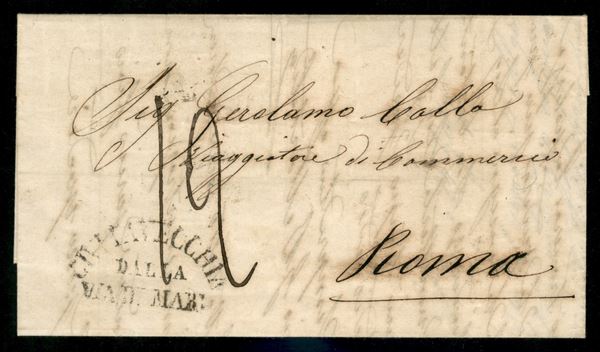 Sig. Gerolamo Collo
Viaggiatore di Commercio
12
CIVITAVECCHIA
DALLA
VIA DI MARE
Roma